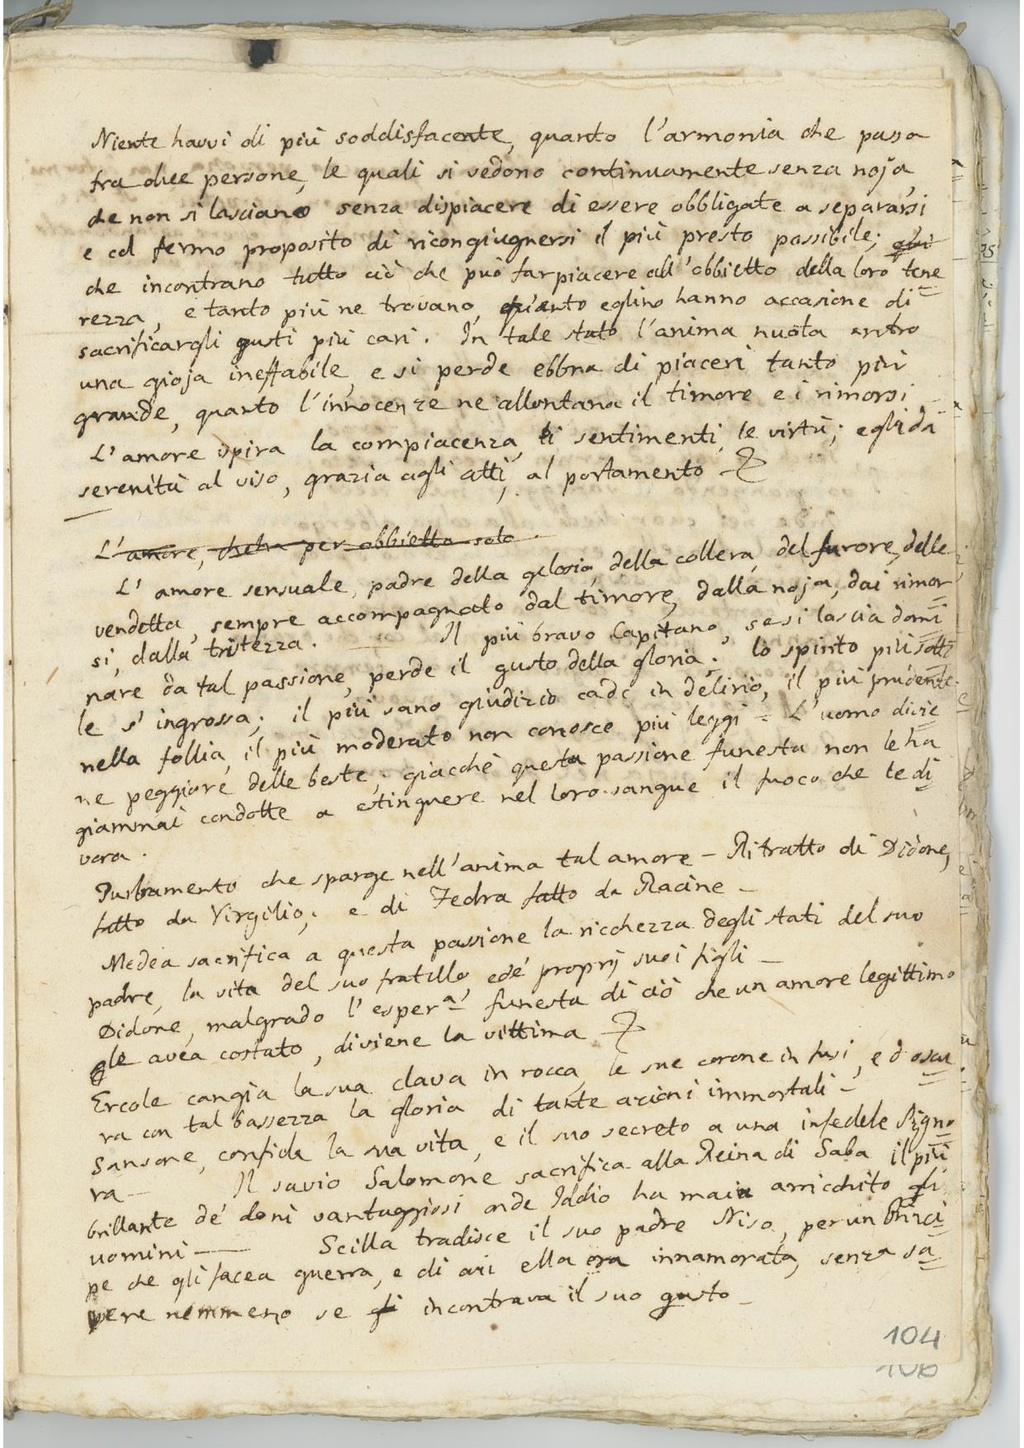 Niente havvi di più soddisfacente, quanto l'armonia che passa
tra due persone, le quali si vedono continuamente senza noja,
che non si lasciano senza dispiacere di essere obbligate a separarsi
e col fermo proposito di ricongiugnersi il più presto possibile;
che incontrano tutto ciò che può far piacere all'obbietto della loro tene
rezza, e tanto più ne trovano, quanto eglino hanno occasione di
sacrificargli gusti più cari. In tale stato l'anima nuota entro
una gioja ineffabile, e si perde ebbra di piaceri tanto più
grande, quanto l'innocenze ne allontana il timore e i rimorsi
L'amore spira la compiacenza, li sentimenti, le virtù; egli dà
serenità al viso, grazia agli atti, al portamento
L'amore, che ha per obbietto solo.
L'amore sensuale, padre della gelosia, della collera, del furore, delle
vendetta, sempre accompagnato dal timore, dalla noja, dai rimor
si, dalla tristezza. Il più bravo Capitano, se si lascia domi
nare da tal passione, perde il gusto della gloria. lo spirito più sotti
le s'ingrossa; il più sano giudizio cade in delirio, il più prudente
nella follia, il più moderato non conosce più leggi = L'uomo divie
ne peggiore delle bestie, giacchè questa passione funesta non le ha
giammai condotte a estinguere nel loro sangue il fuoco che le di
vora.
Turbamento che sparge nell'anima tal amore - Ritratto di Didone,
fatto da Virgilio, e di Fedra fatto da Racine -
Medea sacrifica a questa passione la ricchezza degli stati del suo
padre, la vita del suo fratello, ed e' proprj suoi figli -
Didone, malgrado l'esper.a funesta di ciò che un amore legittimo
gle avea costato, diviene la vittima
Ercole cangia la sua clava in rocca, le sue corone in fusi, e d oscu
ra con tal bassezza la gloria di tante azioni immortali -
Sansone, confida la sua vita, e il suo secreto a una infedele Signo
ra - Il savio Salomone sacrifica alla Reina di Saba il più
brillante de' doni vantaggiosi onde Iddio ha mai arricchito gli
uomini - Scilla tradisce il suo padre Niso, per un Princi
pe che gli facea guerra, e di cui ella era innamorata, senza sa
pere nemmeno se gli incontrava il suo gusto -
104
106